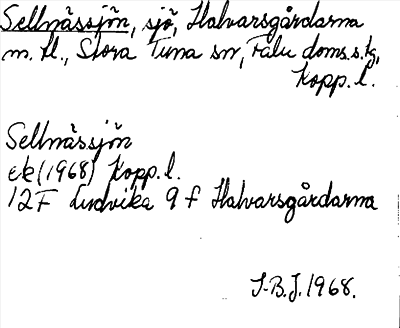 Sellnässjön, sjö, Halvarsgårdarna
m. fl., Stora Tuna sn, Falu doms.s.tg,
Kopp. l.
Sellnässjön
ek (1968) Kopp. l.
12F Ludvika 9 f Halvarsgårdarna
S.B.J. 1968.